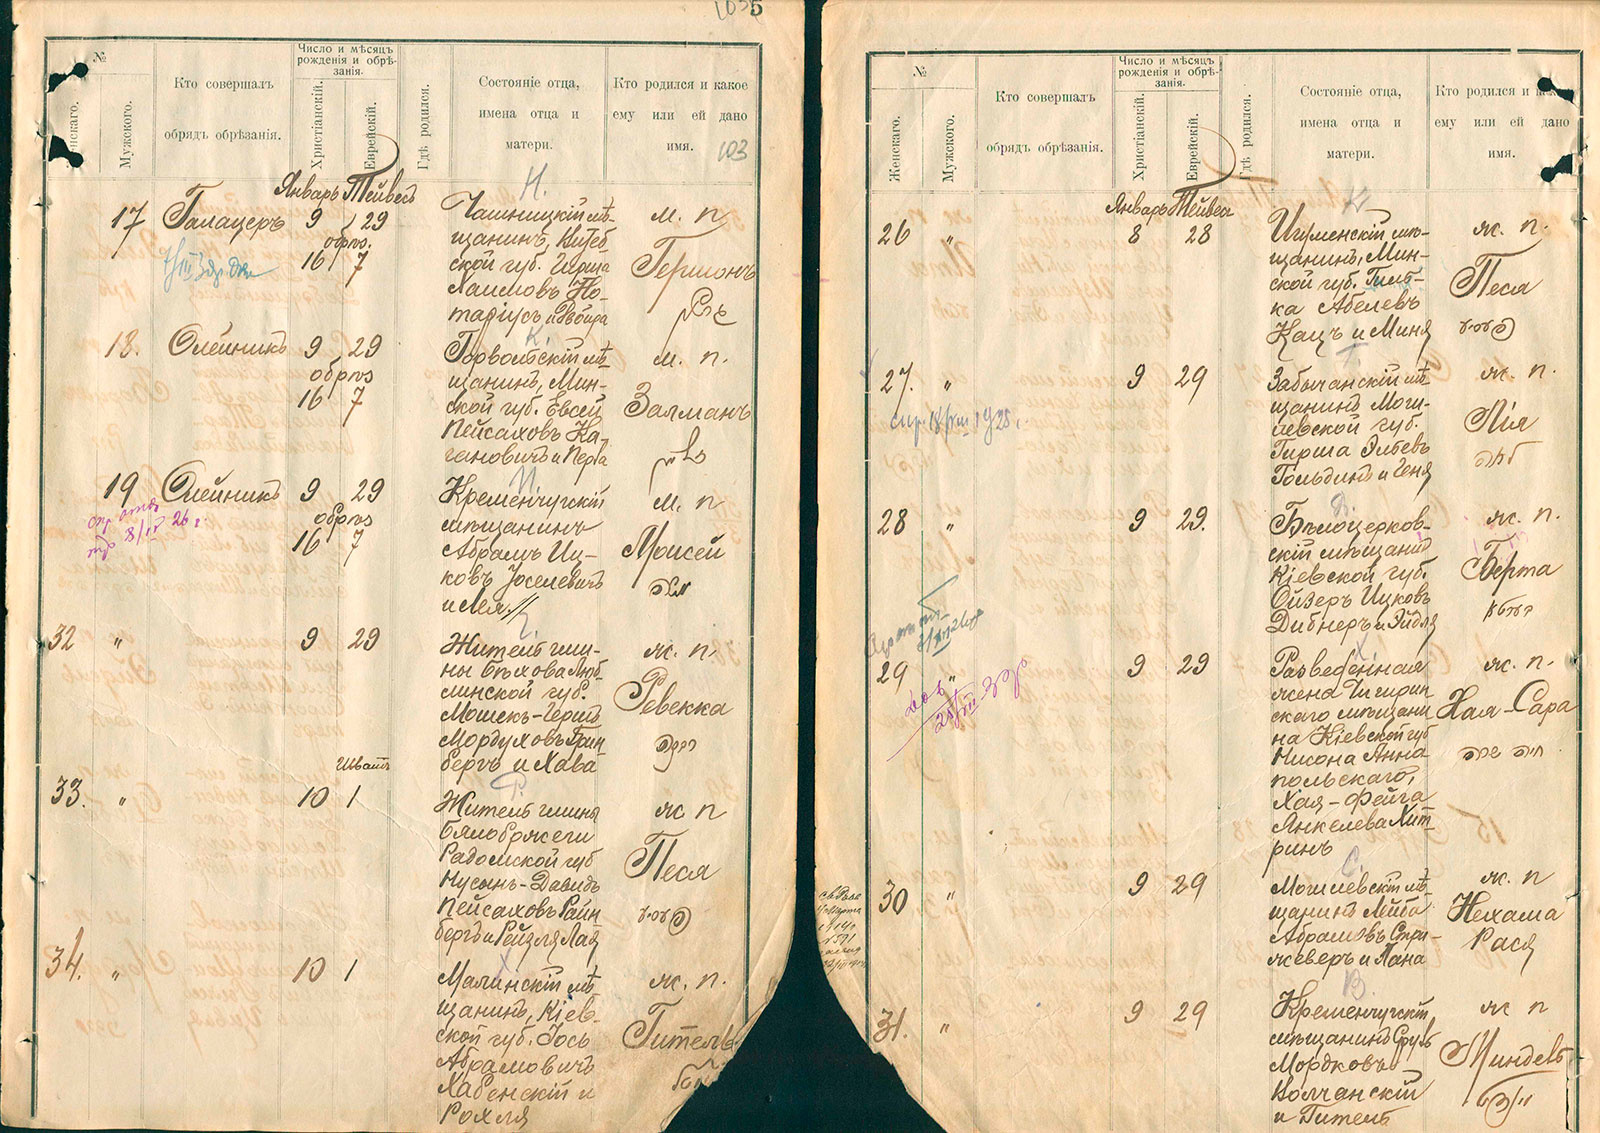 5
№
Женскаго.
Мужского.
Кто совершалъ
обрядъ обрѣзанія.
Число и мѣсяцъ
рожденія и обрѣ-
занія.
Христіанскій.
Еврейскій.
Гдѣ родился.
Состояніе отца,
имена отца и
матери.
Кто родился и какое
ему или ей дано
имя.
103
Январь Тейвесъ
Н.
17 Галацеръ 9 29
обрѣз.
16 7
Чашницкій мѣ-
щанинъ, Витеб
ской губ. Гирша
Хаимовъ Но-
таріусъ и Двойра
м. п
Германъ
К.
18. Олейникъ 9 29
обрѣз
16 7
Горвольскій мѣ-
щанинъ, Мин-
ской губ. Евсей
Пейсаховъ Ка-
гановичъ и Перла
м. п.
Залманъ
И
19 Олейникъ 9 29
обрѣз
16 7
Кременчугскій
мѣщанинъ
Абрамъ Иц-
ковъ Іоселевичъ
и Лея.
м. п
Моисей
משה
32 " 9 29
Житель гми-
ны Бѣхова Люб-
линской губ.
Мошекъ-Гершъ
Мордуховъ Грин
бергъ и Хава
ж. п
Ревекка
רבקה
Шватъ
33. " 10 1
Р.
Житель гмины
Бялобржеги
Радомской губ
Нусынъ-Давидъ
Пейсаховъ Райн
бергъ и Рейзля Лая
ж п
Песя
פעסי
34. " 10 1
Х
Малинскій мѣ-
щанинъ, Кіев-
ской губ. Іось
Абрамовичъ
Хабенскій и
Рохля
ж. п.
Гитель
№
Женскаго.
Мужского.
Кто совершалъ
обрядъ обрѣзанія.
Число и мѣсяцъ
рожденія и обрѣ-
занія.
Христіанскій.
Еврейскій.
Гдѣ родился.
Состояніе отца,
имена отца и
матери.
Кто родился и какое
ему или ей дано
имя.
Январь Тейвесъ
К
26 " 8 28
Игуменскій мѣ-
щанинъ, Мин-
ской губ. Гиле-
ка Абелевъ
Кацъ и Миня
ж. п.
Песя
פעסי
Г.
27. " 9 29
Забычанскій мѣ
щанинъ Моги-
левской губ.
Гирша Эльевъ
Гольдинъ и Геня
ж. п.
Лія
לאה
Д.
28 " 9 29.
Бѣлоцерков-
скій мѣщанинъ
Кіевской губ.
Ойзеръ Ицковъ
Дибнеръ и Эйдля
ж. п.
Берта
בערטא
Х
29 " 9 29
Разведенная
жена Чигирин
скаго мѣщани
на Кіевской губ
Нисона Анна
польскаго,
Хая-Фейга
Янкелева Хит-
ринъ
ж. п.
Хая-Сара
חיה שרה
С.
30 " 9 29
Могилевскій мѣ
щанинъ Лейба
Абрамовъ Стри-
жеверъ и Хана
ж. п
Нехама
Рася
В.
31. " 9 29
Кременчугскій
мѣщанинъ Сруль
Мордковъ
Волчанскій
и Гитель
ж п
Миндель